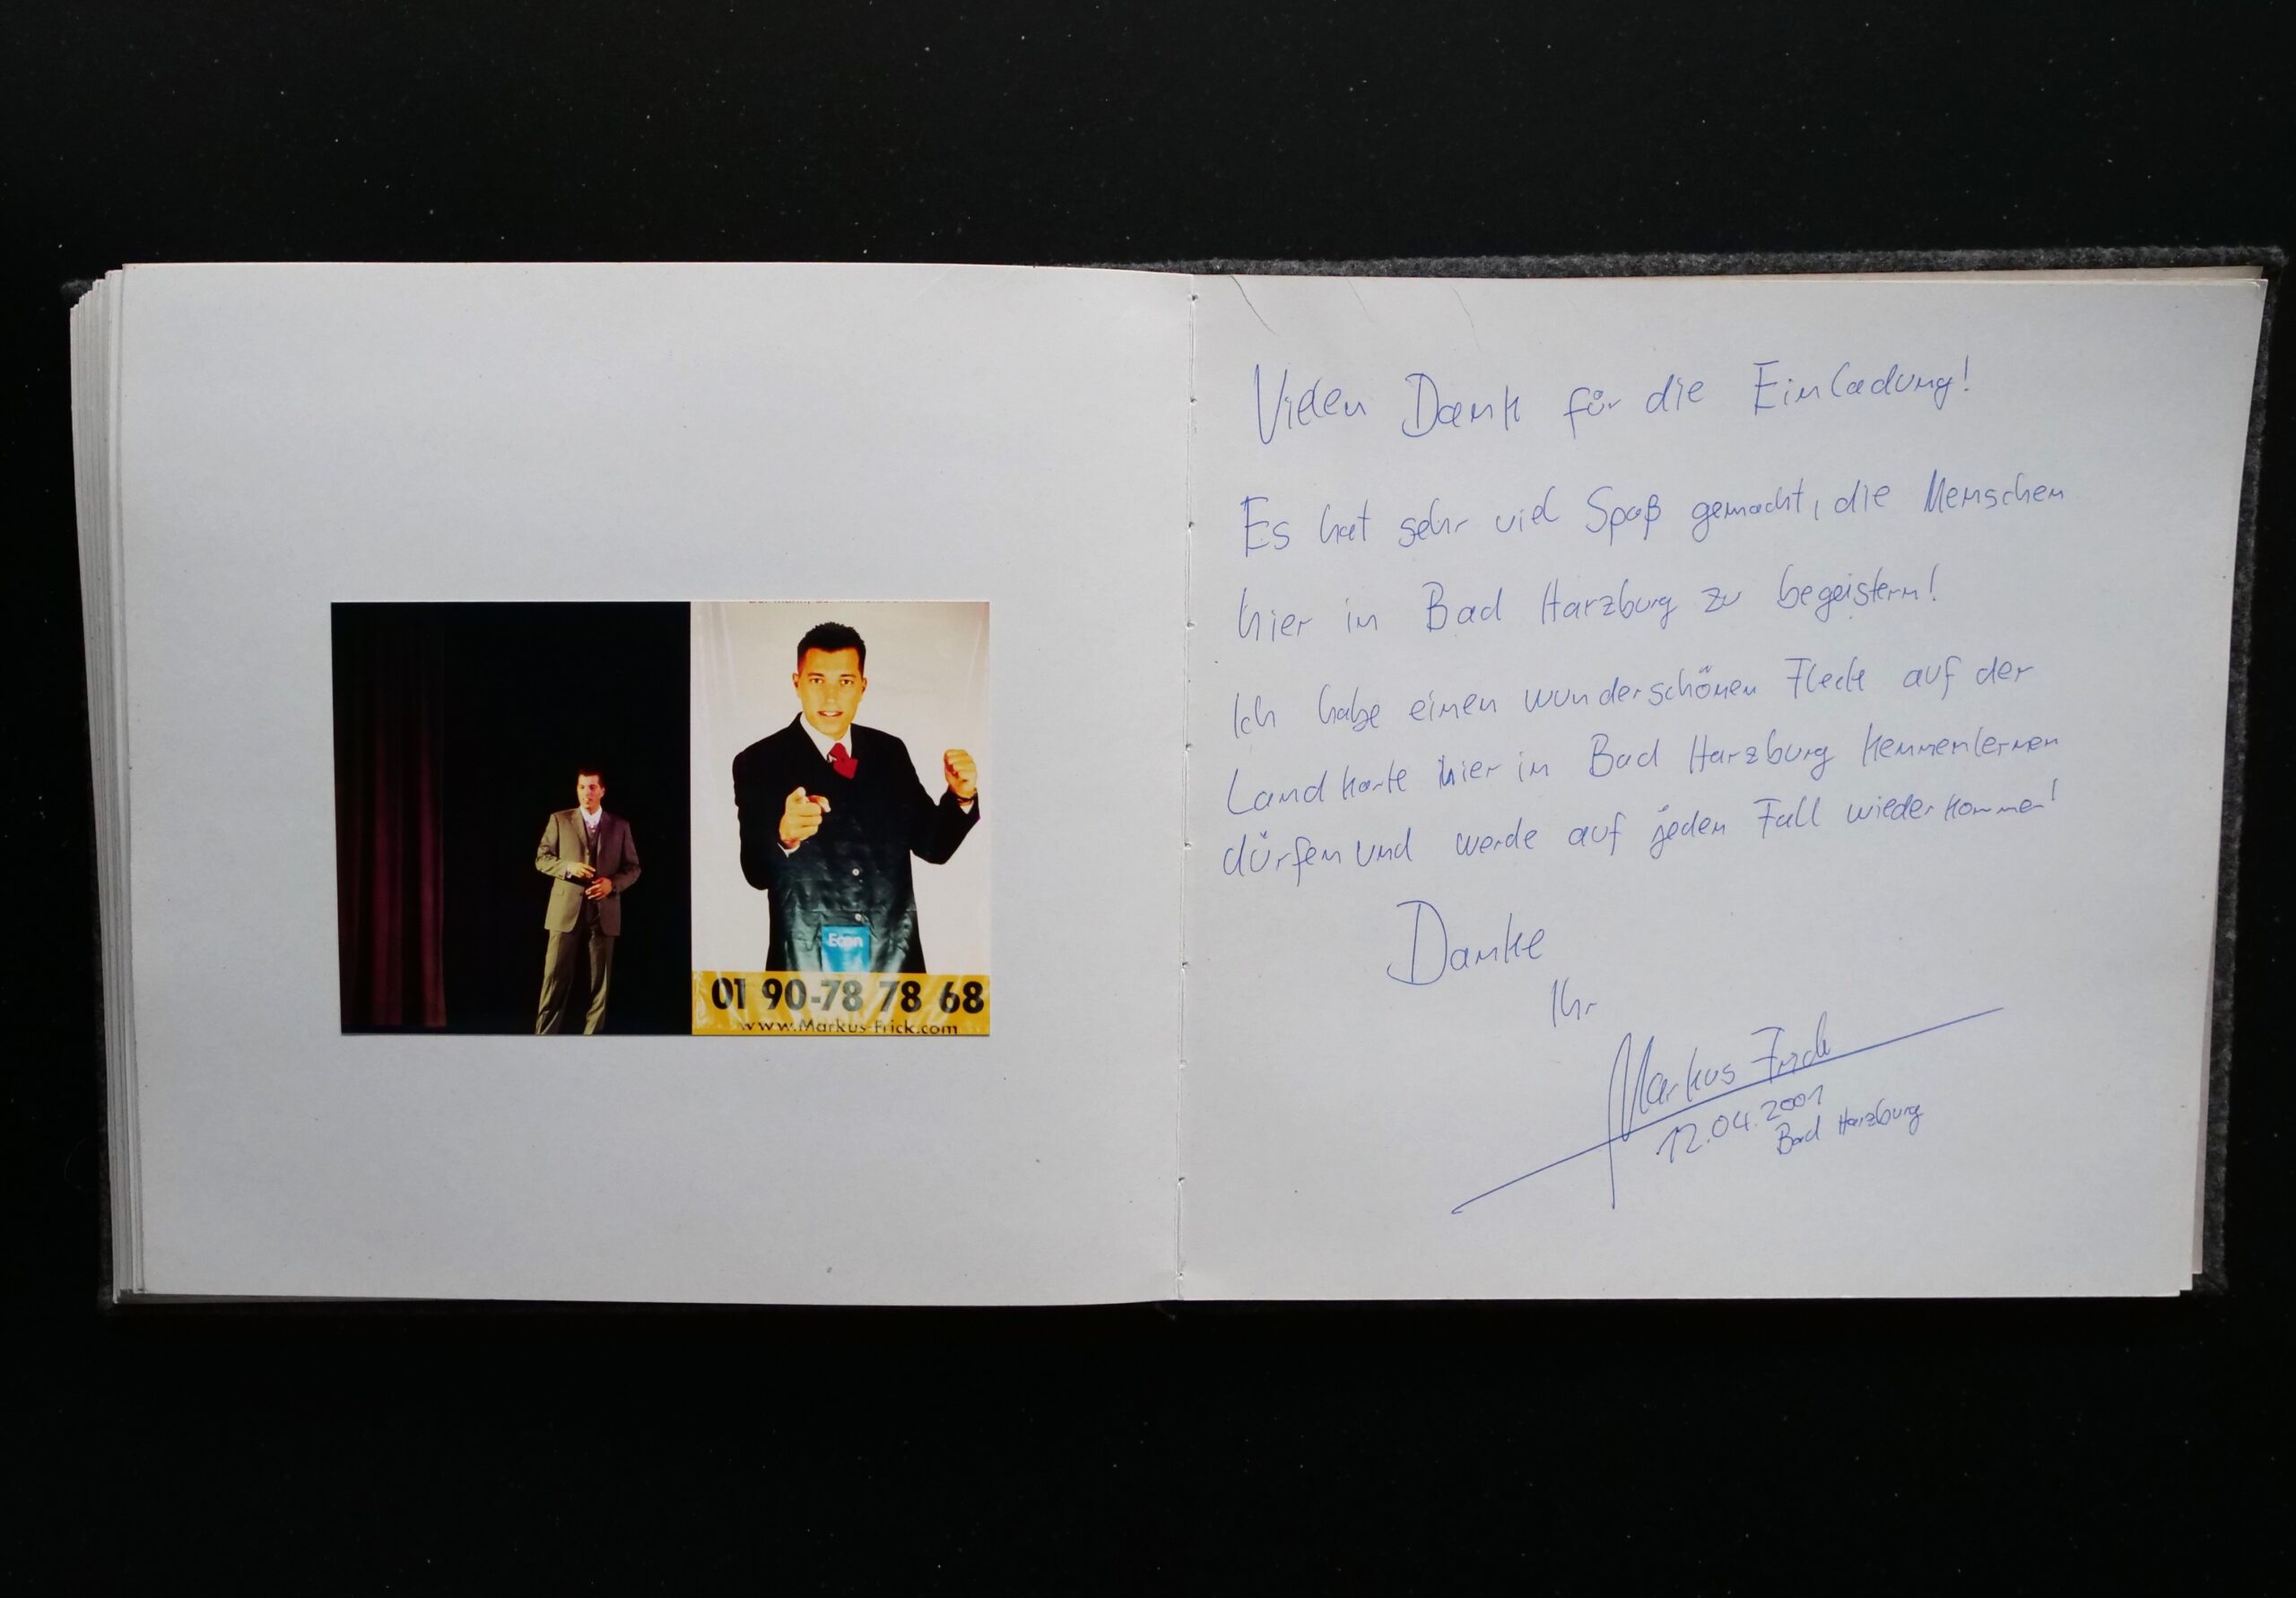 Econ
01 90-78 78 68
www.Markus-Frick.com
Vielen Dank für die Einladung!
Es hat sehr viel Spaß gemacht, die Menschen
hier in Bad Harzburg zu begeistern!
Ich habe einen wunderschönen Fleck auf der
Landkarte hier in Bad Harzburg kennenlernen
dürfen und werde auf jeden Fall wiederkommen!
Danke
Ihr
Markus Frick
12.04.2001
Bad Harzburg